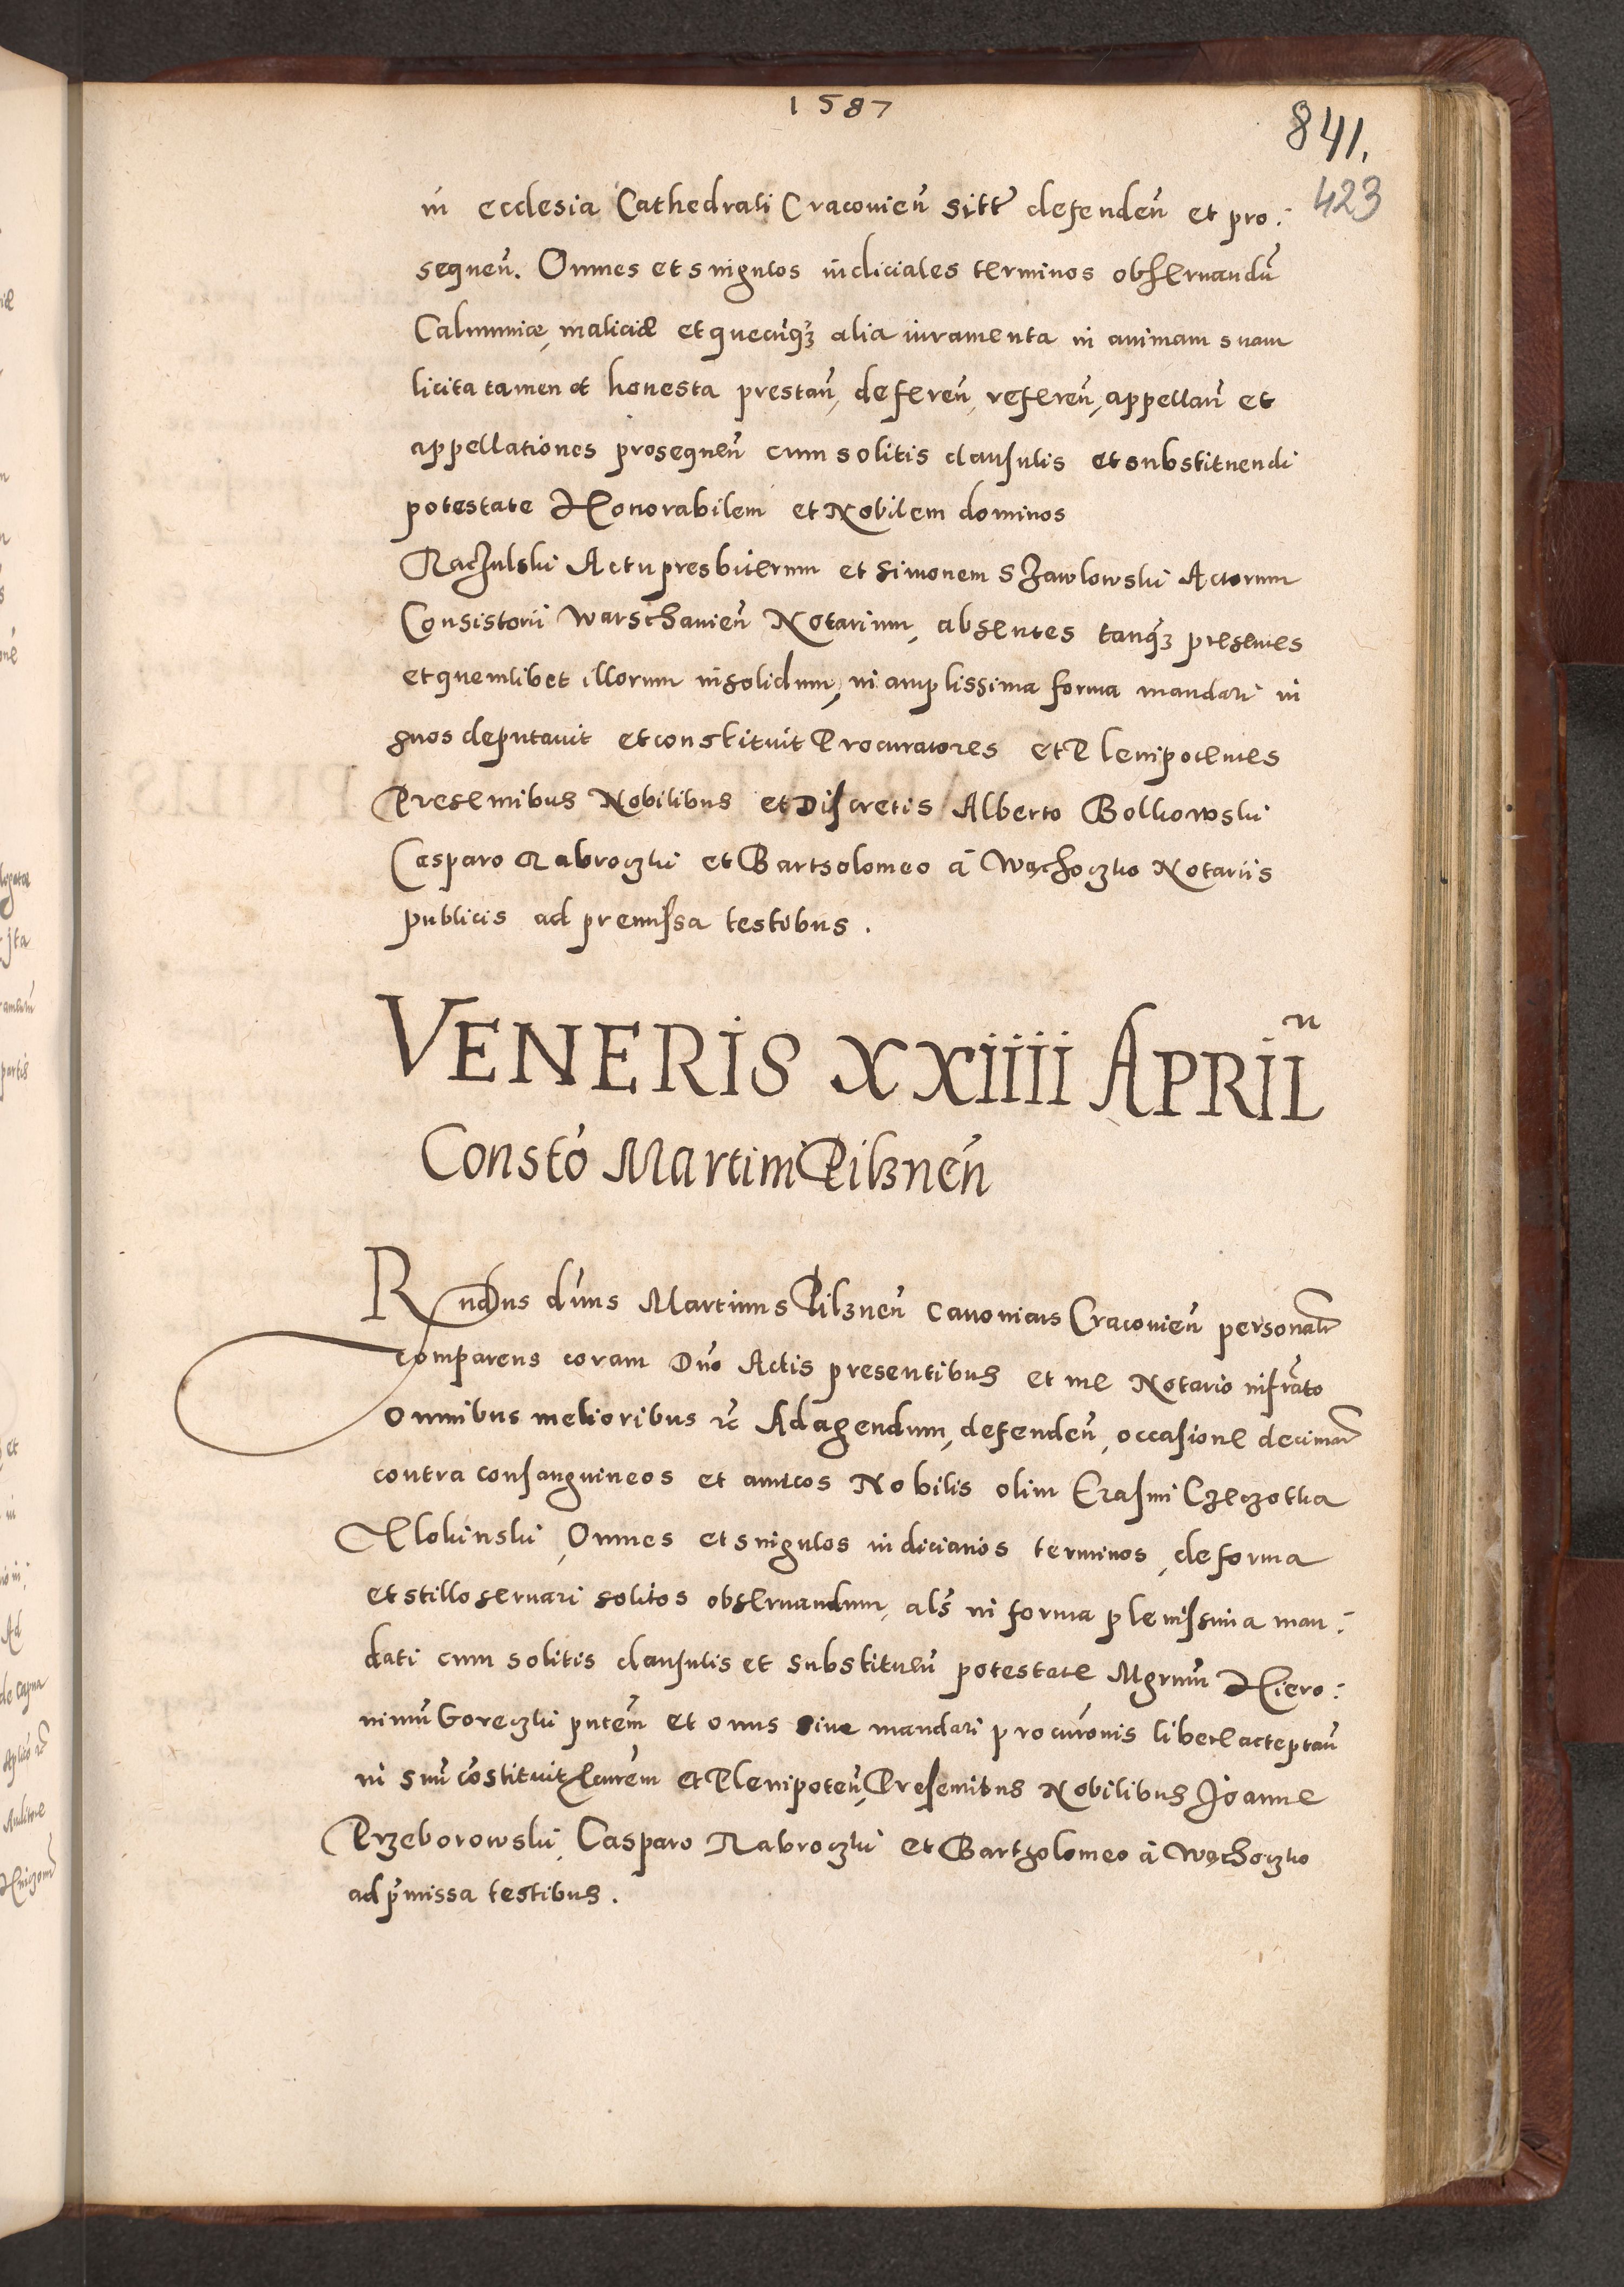 1587
841.
423
in ecclesia Cathedrali Cracovien̄ sitt̃ defenden̄ et pro:
sequen̄. Omnes et singulos iudiciales terminos obseruandū
Calumniæ, maliciæ et quecūq̃ʒ alia iuramenta in animam suam
licita tamen et honesta prestan̄, deferen̄, referen̄, appellan̄ et
appellationes prosequen̄ cum solitis clausulis et substituendi
potestate Honorabilem et Nobilem dominos
Raczulski Actu presbiterum et Simonem Szawlowski Actorum
Consistorii Warschauien̄ Notarium, absentes tanq̃ʒ presentes
et quemlibet illorum insolidum, in amplissima forma mandati in
suos deputauit et constituit Procuratores et Plenipotentes
Presentibus Nobilibus et Discretis Alberto Bolkowski
Casparo Nabroczki et Bartholomeo à Wąchoczko Notariis
publicis ad premissa testibus.
VENERIS XXIIII APRIL̃n
Constō Martini Pilznen̄
Rndus dūns Martinus Pilznen̄ Canonicus Cracouien̄ personalr̃
comparens coram Dūo Actis presentibus et me Notario infrāto
omnibus melioribus ꝛc̃ Ad agendum, defenden̄, occasione decimar̃
contra consanguineos et amicos Nobilis olim Erasmi Czeczotka
Klokinski, Omnes et singulos iudiciarios terminos, de forma
et stillo seruari solitos obseruandum, als̃ in forma plenissima man:
dati cum solitis clausulis et substituen̄ potestate Mgrum̄ Hiero:
nimū Goreczki pn̄tem̄ et onus siue mandati procurōnis libere acceptan̄
in suū cōstituit Pcurēm et Plenipoten̄, Presentibus Nobilibus Joanne
Przeborowski, Casparo Nabroczki et Bartholomeo à Wąchoczko
ad p̄missa testibus.